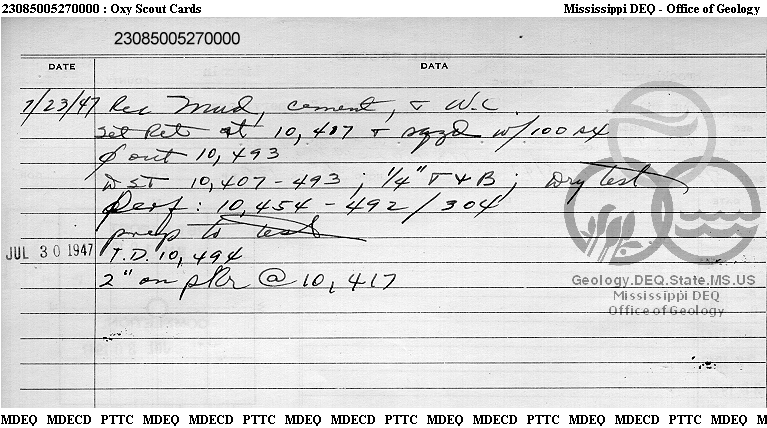 23085005270000 : Oxy Scout Cards Mississippi DEQ - Office of Geology
23085005270000
DATE DATA
7/23/47 Rec Mud, cement, & W.C.
Set Ret at 10,417 & sqzd w/100 sx
out 10,493
DST 10,407-493; 1/4" T & B; Dry test
Perf: 10,454-492/304
prep to test
JUL 30 1947 T.D. 10,494
2" on pkr @ 10,417
Geology.DEQ.State.MS.US
Mississippi DEQ
Office of Geology
MDEQ MDECD PTTC MDEQ MDECD PTTC MDEQ MDECD PTTC MDEQ MDECD PTTC MDEQ MDECD PTTC MDEQ M